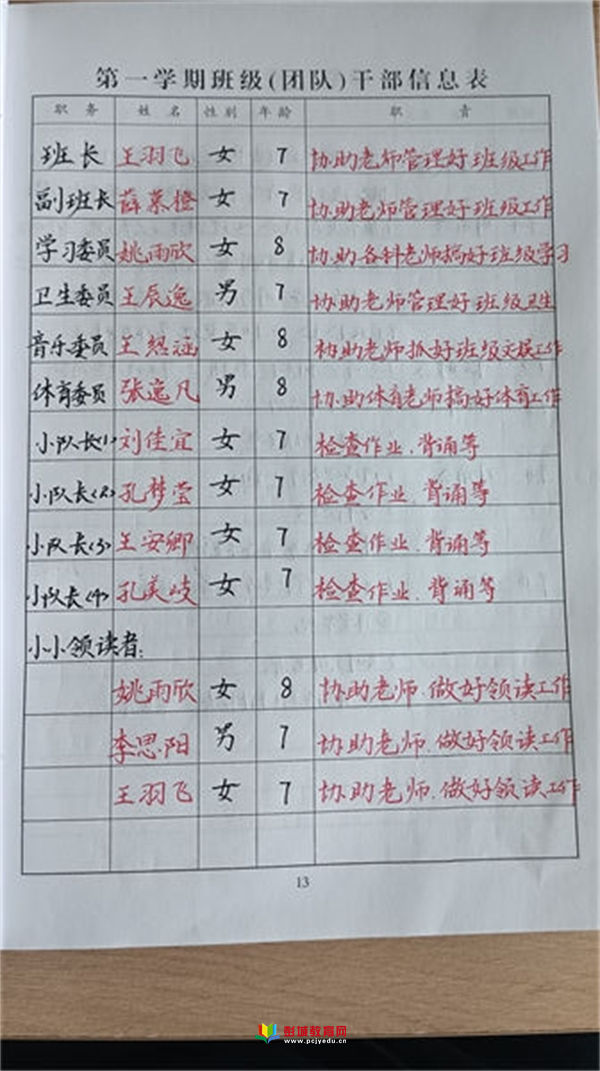 第一学期班级(团队)干部信息表
职务 姓名 性别 年龄 职责
班长 王羽飞 女 7 协助老师管理好班级工作
副班长 薛慕橙 女 7 协助老师管理好班级工作
学习委员 姚雨欣 女 8 协助各科老师搞好班级学习
卫生委员 王辰逸 男 7 协助老师管理好班级卫生
音乐委员 王 涵 女 8 协助老师抓好班级文娱工作
体育委员 张逸凡 男 8 协助体育老师搞好体育工作
小队长(1) 刘佳宜 女 7 检查作业、背诵等
小队长(2) 孔梦莹 女 7 检查作业、背诵等
小队长(3) 王安卿 女 7 检查作业、背诵等
小队长(4) 孔美岐 女 7 检查作业、背诵等
小小领读者:
姚雨欣 女 8 协助老师、做好领读工作
李思阳 男 7 协助老师、做好领读工作
王羽飞 女 7 协助老师、做好领读工作
13
彭城教育网
www.pcjyedu.cn